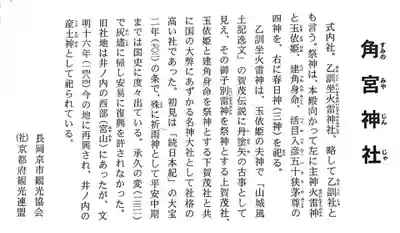 角宮神社
すみのみやじんじゃ
式内社。乙訓坐火雷神社、略して乙訓社と
も言う。祭神は、本殿向かって左に主神火雷神
と玉依姫、建角身命、活目入彦五十狭茅尊の
四神を、右に春日神(三神)を祀る。
乙訓坐火雷神は、玉依姫の夫神で「山城風
土記逸文」の賀茂伝説に丹塗矢の古事として
見え、その御子別雷神を祭神とする上賀茂社、
玉依姫と建角身命を祭神とする下賀茂社と共
に国の大弊にあずかる名神大社として社格の
高い社であった。初見は「続日本紀」の大宝
二年(七〇二)の条で、殊に祈雨神として平安中期
までは国史に度々出ている。承久の変(一二二一)
で灰塵に帰し安易に復興を許されなかった。
旧社地は井ノ内の西部(宮山)にあったが、文
明十六年(一四八四)今の地に再興され、井ノ内の
産土神として祀られている。
長岡京市観光協会
(社)京都府観光連盟